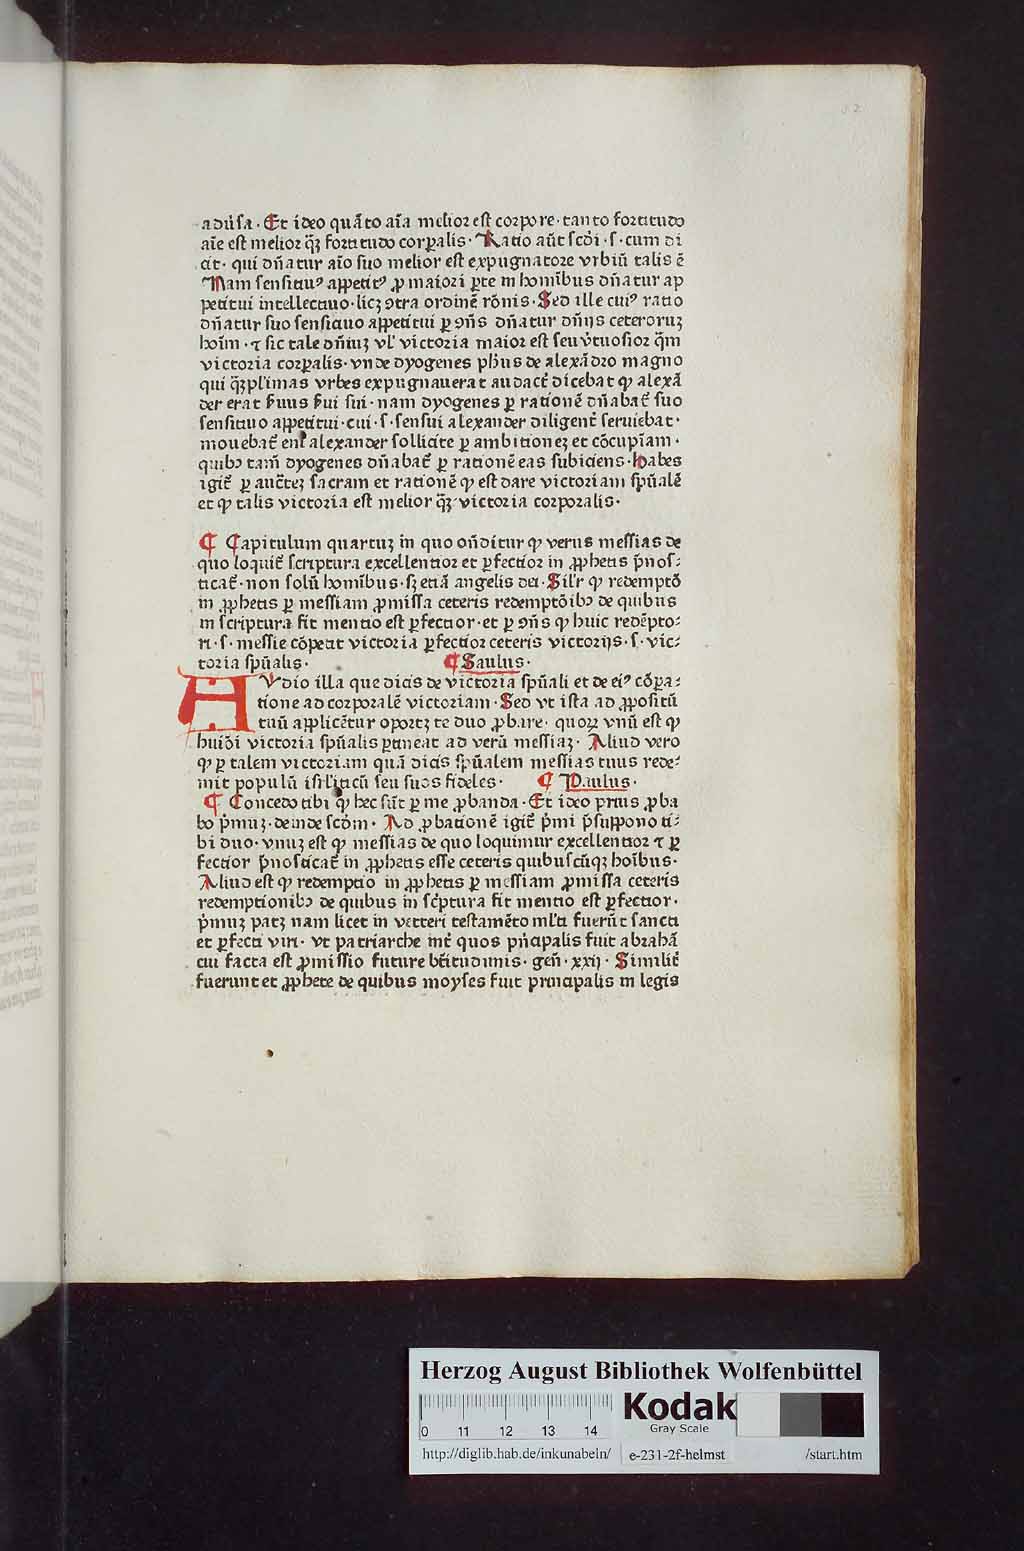 32
adu̓sa · Et ideo quãto aĩa melior est corpore · tanto fortitudo
aĩe est melior q̃ꝫ fortitudo corꝑalis · Ratio aũt scd̓i · s · cum di
cit · qui dñatur aĩo suo melior est expugnatore vrbiũ talis ẽ
Nam sensitiuꝰ appetitꝰ ꝓ maiori ꝑte in hominibus dñatur ap
petitui intellectiuo · licꝫ ꝯtra ordinẽ rõnis · Sed ille cuiꝰ ratio
dñatur suo sensitiuo appetitui ꝑ ꝯñs dñatur dñijs ceteroruꝫ
hoĩm · ⁊ sic tale dñiuꝫ vl̓ victoria maior est seu v̓tuosior q̃m
victoria corꝑalis · vnde dyogenes ph̃us de alexãdro magno
qui q̃ꝫpl̓imas vrbes expugnauerat audact̓ dicebat ꝙ alexã
der erat s̓uus s̓ui sui · nam dyogenes ꝑ rationẽ dñabat̃ suo
sensitiuo appetitui · cui · s · sensui alexander diligent̓ seruiebat ·
mouebat̃ eni̓ alexander sollicite ꝑ ambitioneꝫ et cõcupĩam ·
quibꝫ tam̃ dyogenes dñabat̃ ꝑ rationẽ eas subiciens · Habes
igit̃ ꝑ auct̃eꝫ sacram et rationẽ ꝙ est dare victoriam spũalẽ
et ꝙ talis victoria est melior q̃ꝫ victoria corporalis ·
¶ Capitulum quartuꝫ in quo oñditur ꝙ verus messias de
quo loquit̃ scriptura excellentior et ꝑfectior in ꝓphetis p̃nos⸗
ticat̃ · non solũ hominibus · sꝫ etiã angelis dei · Sil̓r ꝙ redemptõ
in ꝓphetis ꝑ messiam ꝓmissa ceteris redemptõibꝫ de quibus
in scriptura fit mentio est ꝑfectior · et ꝑ ꝯñs ꝙ huic redẽpto⸗
ri · s · messie cõpetat victoria ꝑfectior ceteris victorijs · s · vic⸗
toria spũalis · ¶ Saulus ·
AVdio illa que dicis de victoria spũali et de eiꝰ cõꝑa⸗
tione ad corporalẽ victoriam · Sed vt ista ad ꝓpositũ
tuũ applicẽtur oportꝫ te duo ꝓbare · quoꝝ vnũ est ꝙ
huiõi victoria spũalis ꝑtineat ad verũ messiaꝫ · Aliud vero
ꝙ ꝑ talem victoriam quã dicis spũalem messias tuus rede⸗
mit populũ isrl̓iticũ seu suos fideles · ¶ Paulus ·
¶ Concedo tibi ꝙ hec sũt ꝑ me ꝓbanda · Et ideo prius ꝓba
bo p̓muꝫ · deinde scd̓m · Ad ꝓbationẽ igit̃ p̓mi p̃suppono ti⸗
bi duo · vnuꝫ est ꝙ messias de quo loquimur excellentior ⁊ ꝑ
fectior p̃nosticat̃ in ꝓphetis esse ceteris quibuscũqꝫ hoĩbus ·
Aliud est ꝙ redemptio in ꝓphetis ꝑ messiam ꝓmissa ceteris
redemptionibꝫ de quibus in sc̓ptura fit mentio est ꝑfectior ·
p̓muꝫ patꝫ nam licet in vetteri testamẽto ml̓ti fuerũt sancti
et ꝑfecti viri · vt patriarche int̓ quos p̓ncipalis fuit abrahã
cui facta est ꝓmissio future bt̃itudinis · geñ · xxij · Similit̓
fuerunt et ꝓphete de quibus moyses fuit principalis in legis
Herzog August Bibliothek Wolfenbüttel
0 11 12 13 14
Kodak
Gray Scale
http://diglib.hab.de/inkunabeln/ e-231-2f-helmst /start.htm